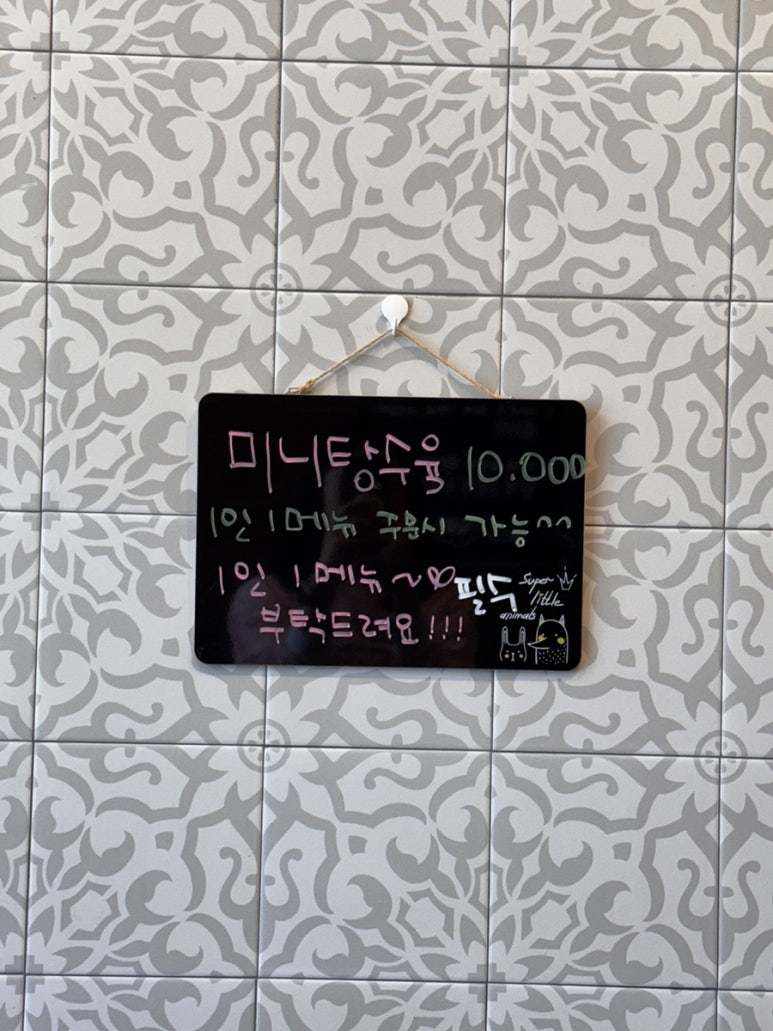 미니탕수육 10.000
1인 1메뉴 주문시 가능^^
1인 1메뉴~♡ 필수
부탁드려요!!!
Super
little
animals